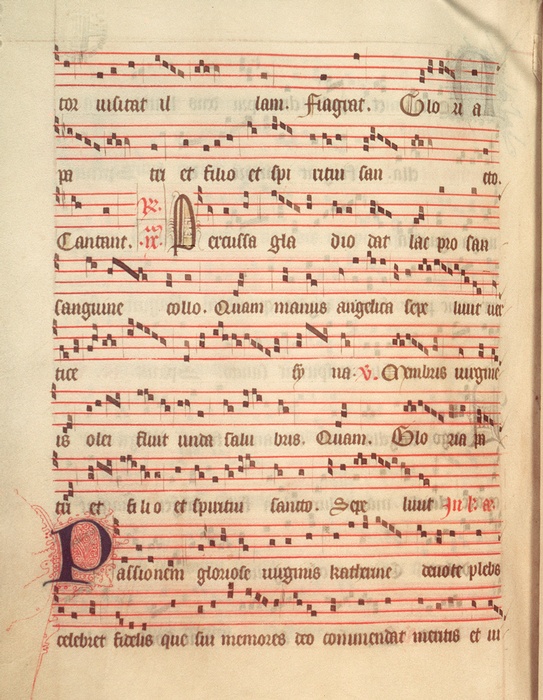 tor visitat il lam. Flagrat. Glo ri a
pa tri et filio et spi ritui san cto.
Cantant. R. ix. Percussa gla dio dat lac pro san
sanguine collo. Quam manus angelica sepe livit ver
tice sy na. V. Membris virgine
is olei fluit unda salu bris. Quam. Glo ria pa
tri et fi li o et spiritui sancto. Sepe livit In l. a.
Passionem gloriose virginis katherine devote plebs
celebret fidelis que sui memores deo commendat meritis et in